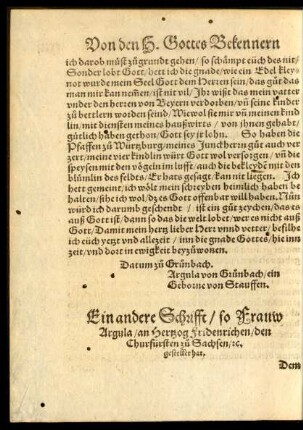 Von den H. Gottes Bekennern
ich darob můst zůgrundt gehen/ so schümpt eüch des nit/
Sonder lobt Gott/ hett ich die gnade/ wie ein Edel kley
not wurde mein Seel Gott dem Herren sein/ das gůt das
man mir kan nemen/ ist nit vil/ Ihr wißt das mein vatter
vnder den herren von Beyern verdorben/ vñ seine kinder
zů bettlern worden seind/ Wiewol sie mir vñ meinen kind
lin/ mit diensten meines haußwirts/ von ihnen gehabt/
gůtlich haben gethon/ Gott sey jr lohn. So haben die
Pfaffen zů Würtzburg/ meines Junckhern gůt auch ver
zert/ meine vier kindlin würt Gott wol versorgen/ vñ die
speysen mit den vögeln im lufft/ auch die bekleydẽ mit den
blümlin des feldts/ Er hats gesagt/ kan nit liegen. Ich
hett gemeint/ ich wölt mein schreyben heimlich haben be
halten/ sihe ich wol/ dz es Gott offenbar will haben. Nůn
würd ich darumb geschendt/ ist ein gůt zeychen/ das es
auß Gott ist/ dann so das die welt lobet/ wer es nicht auß
Gott/ Damit mein hertz lieber Herr vnnd vetter/ befilhe
ich eüch yetzt vnd allezeit/ inn die gnade Gottes/ hie inn
zeit/ vnd dort in ewigkeit beyzůwonen.
Datum zů Grünbach.
Argula von Grünbach/ ein
Geborne von Stauffen.
Ein andere Schrifft/ so Frauw
Argula/ an Hertzog Fridenrichen/ den
Churfürsten zů Sachsen/ ꝛc.
gestellt hat.
Dem